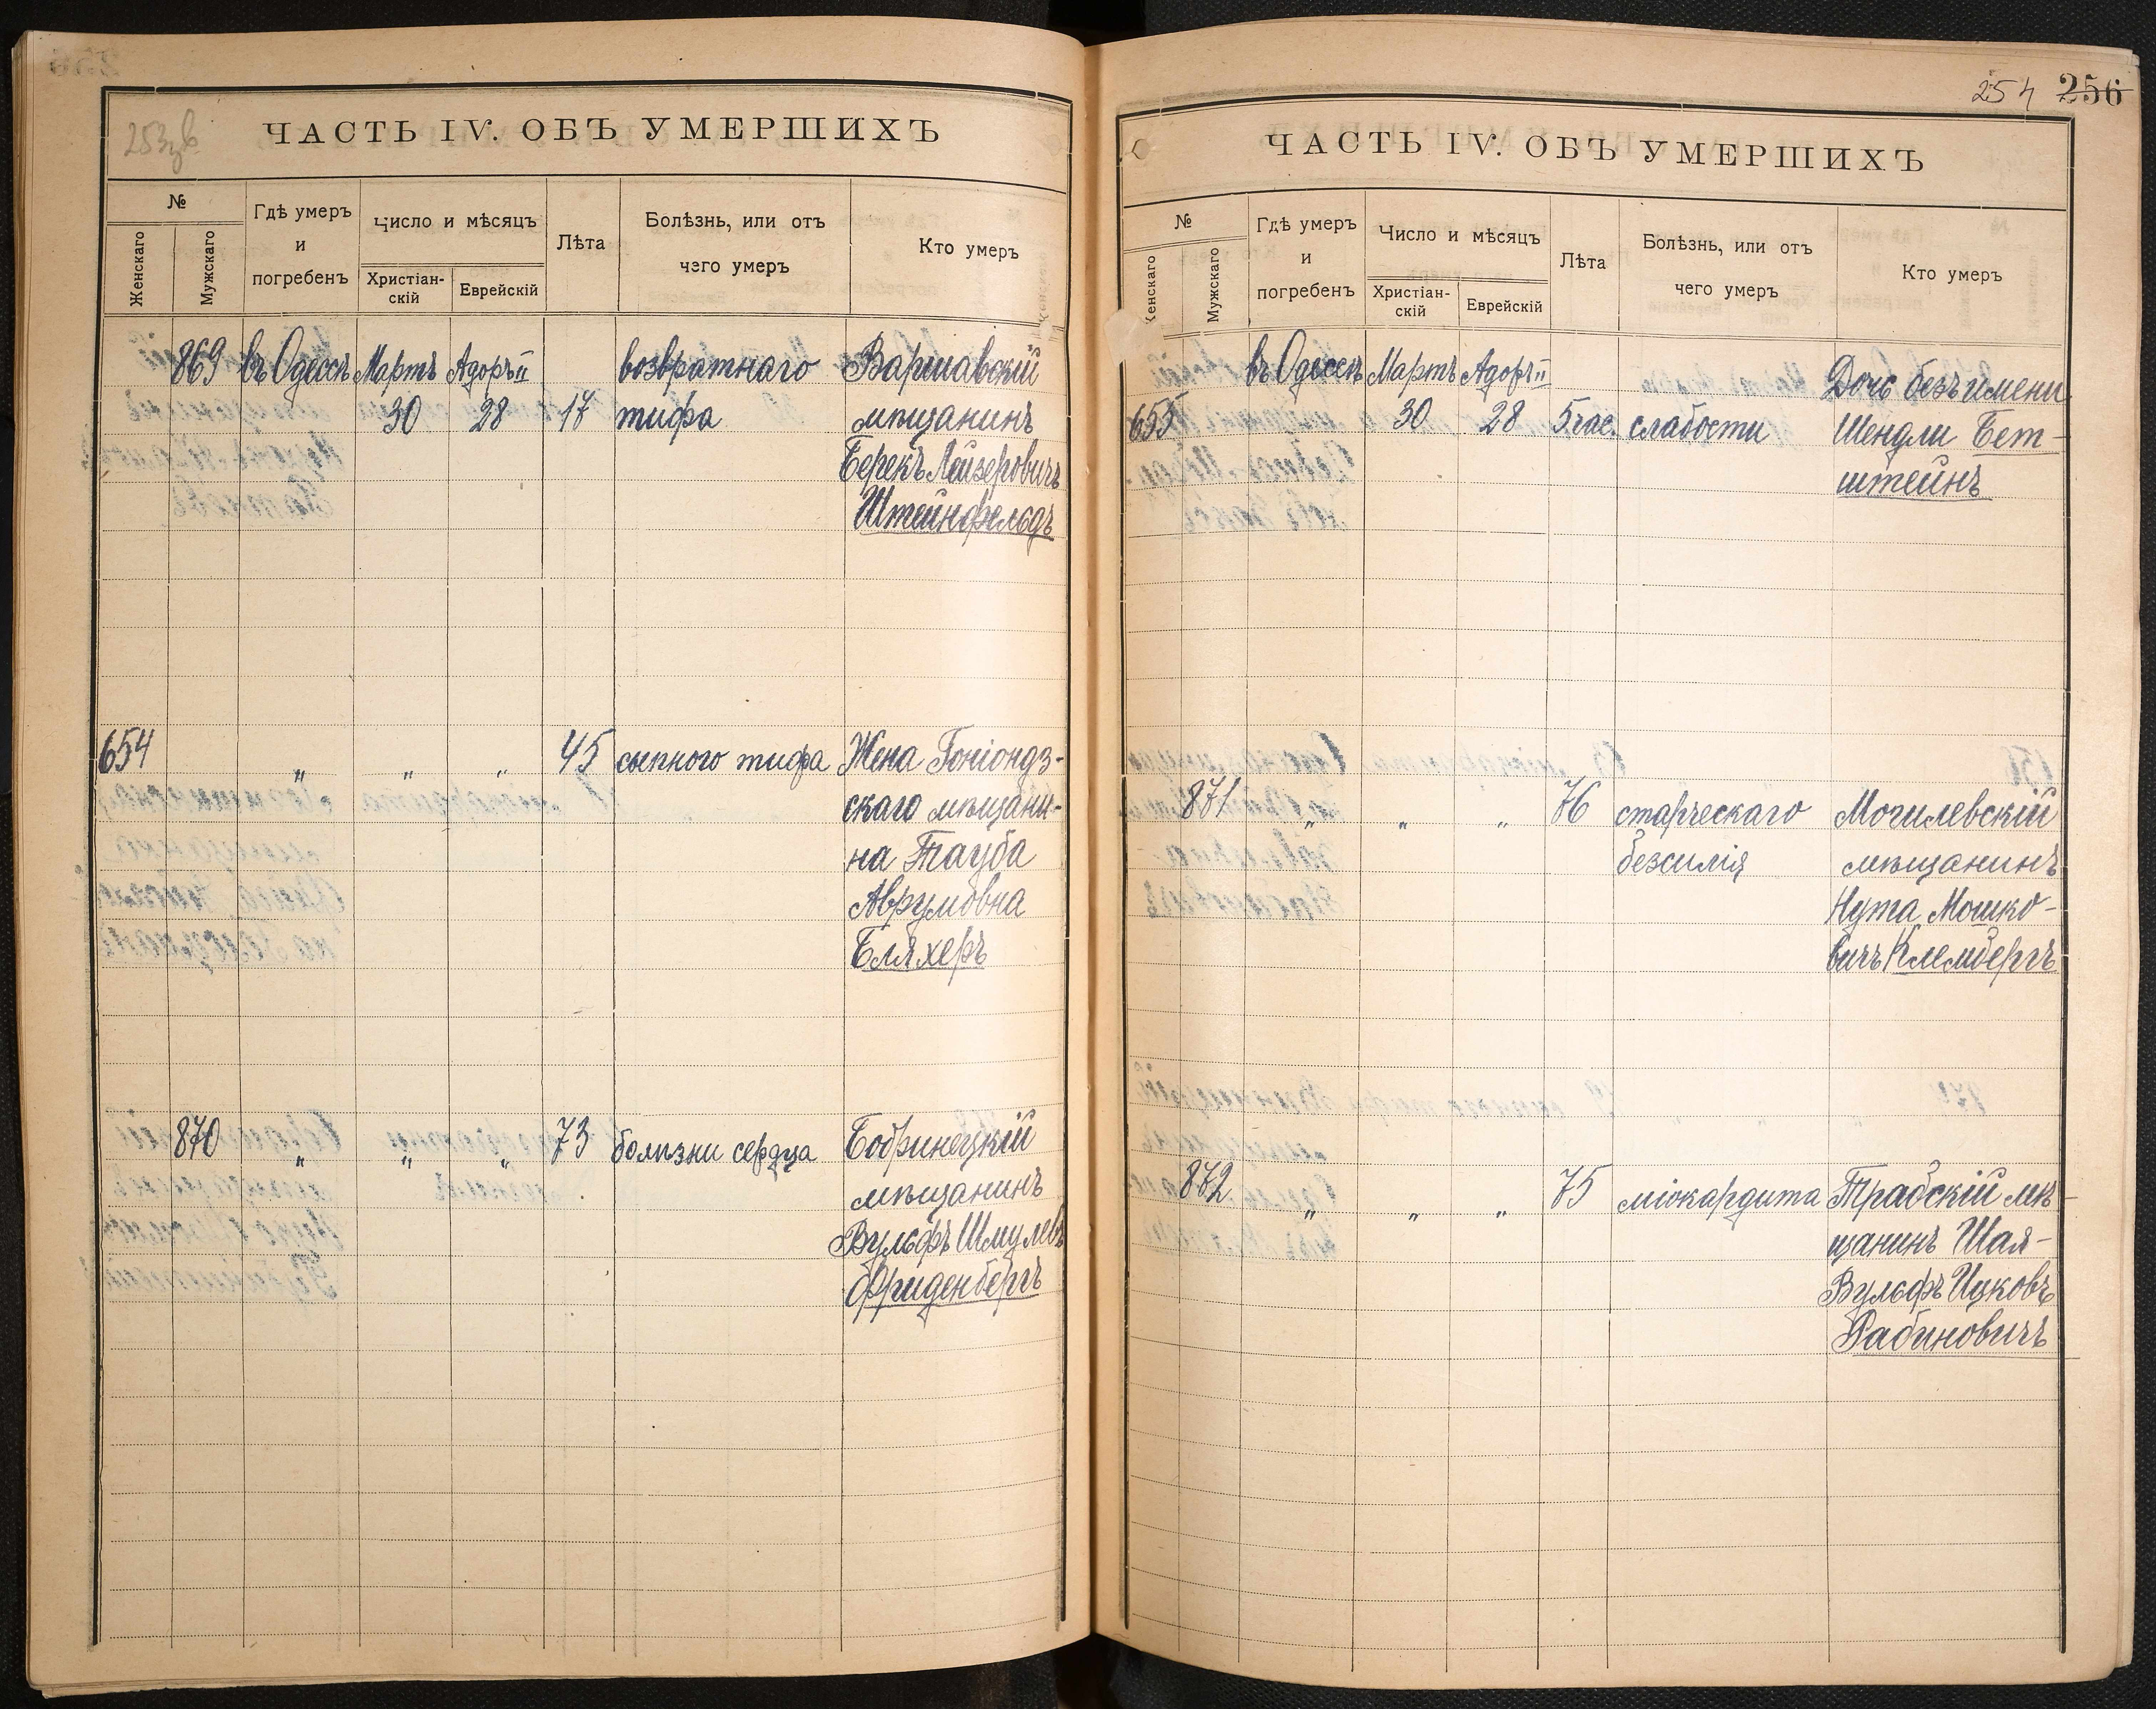 253зв
ЧАСТЬ IV. ОБЪ УМЕРШИХЪ
№
Женскаго
Мужскаго
Гдѣ умеръ
и
погребенъ
Число и мѣсяцъ
Христіан-
скій
Еврейскій
Лѣта
Болѣзнь, или отъ
чего умеръ
Кто умеръ
869 въ Одессѣ Мартъ Адоръ II возвратнаго Варшавскій
30 28 17 тифа мѣщанинъ
Берекъ Лейзеровичъ
Штейнфельдъ
654 „ „ „ 45 сыпного тифа Жена Гоніондз-
скаго мѣщани-
на Тауба
Аврумовна
Бляхеръ
870 „ „ „ 73 болѣзни сердца Бобринецкій
мѣщанинъ
Вульфъ Шмулевъ
Фриденбергъ
254 256
ЧАСТЬ IV. ОБЪ УМЕРШИХЪ
№
Женскаго
Мужскаго
Гдѣ умеръ
и
погребенъ
Число и мѣсяцъ
Христіан-
скій
Еврейскій
Лѣта
Болѣзнь, или отъ
чего умеръ
Кто умеръ
въ Одессѣ Мартъ Адоръ II Дочь безъ имени
655 30 28 5 час. слабости Шендли Бет-
штейнъ
871 „ „ „ 76 старческаго Могилевскій
безсилія мѣщанинъ
Нута Мошко-
вичъ Клембергъ
872 „ „ „ 75 міокардита Трабскій мѣ-
щанинъ Шая-
Вульфъ Ицковъ
Рабиновичъ